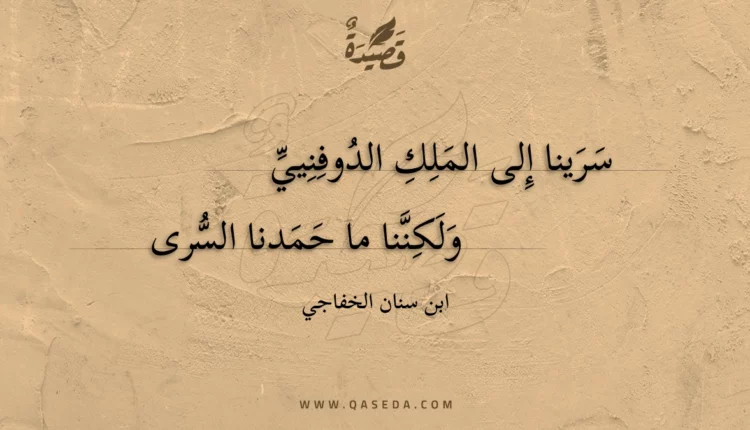 قَصِيدَةٌ
سَرَينا إِلى المَلِكِ الدُوفِنِييِّ
وَلَكِنَّنا ما حَمَدنا السُّرى
ابن سنان الخفاجي
WWW.QASEDA.COM